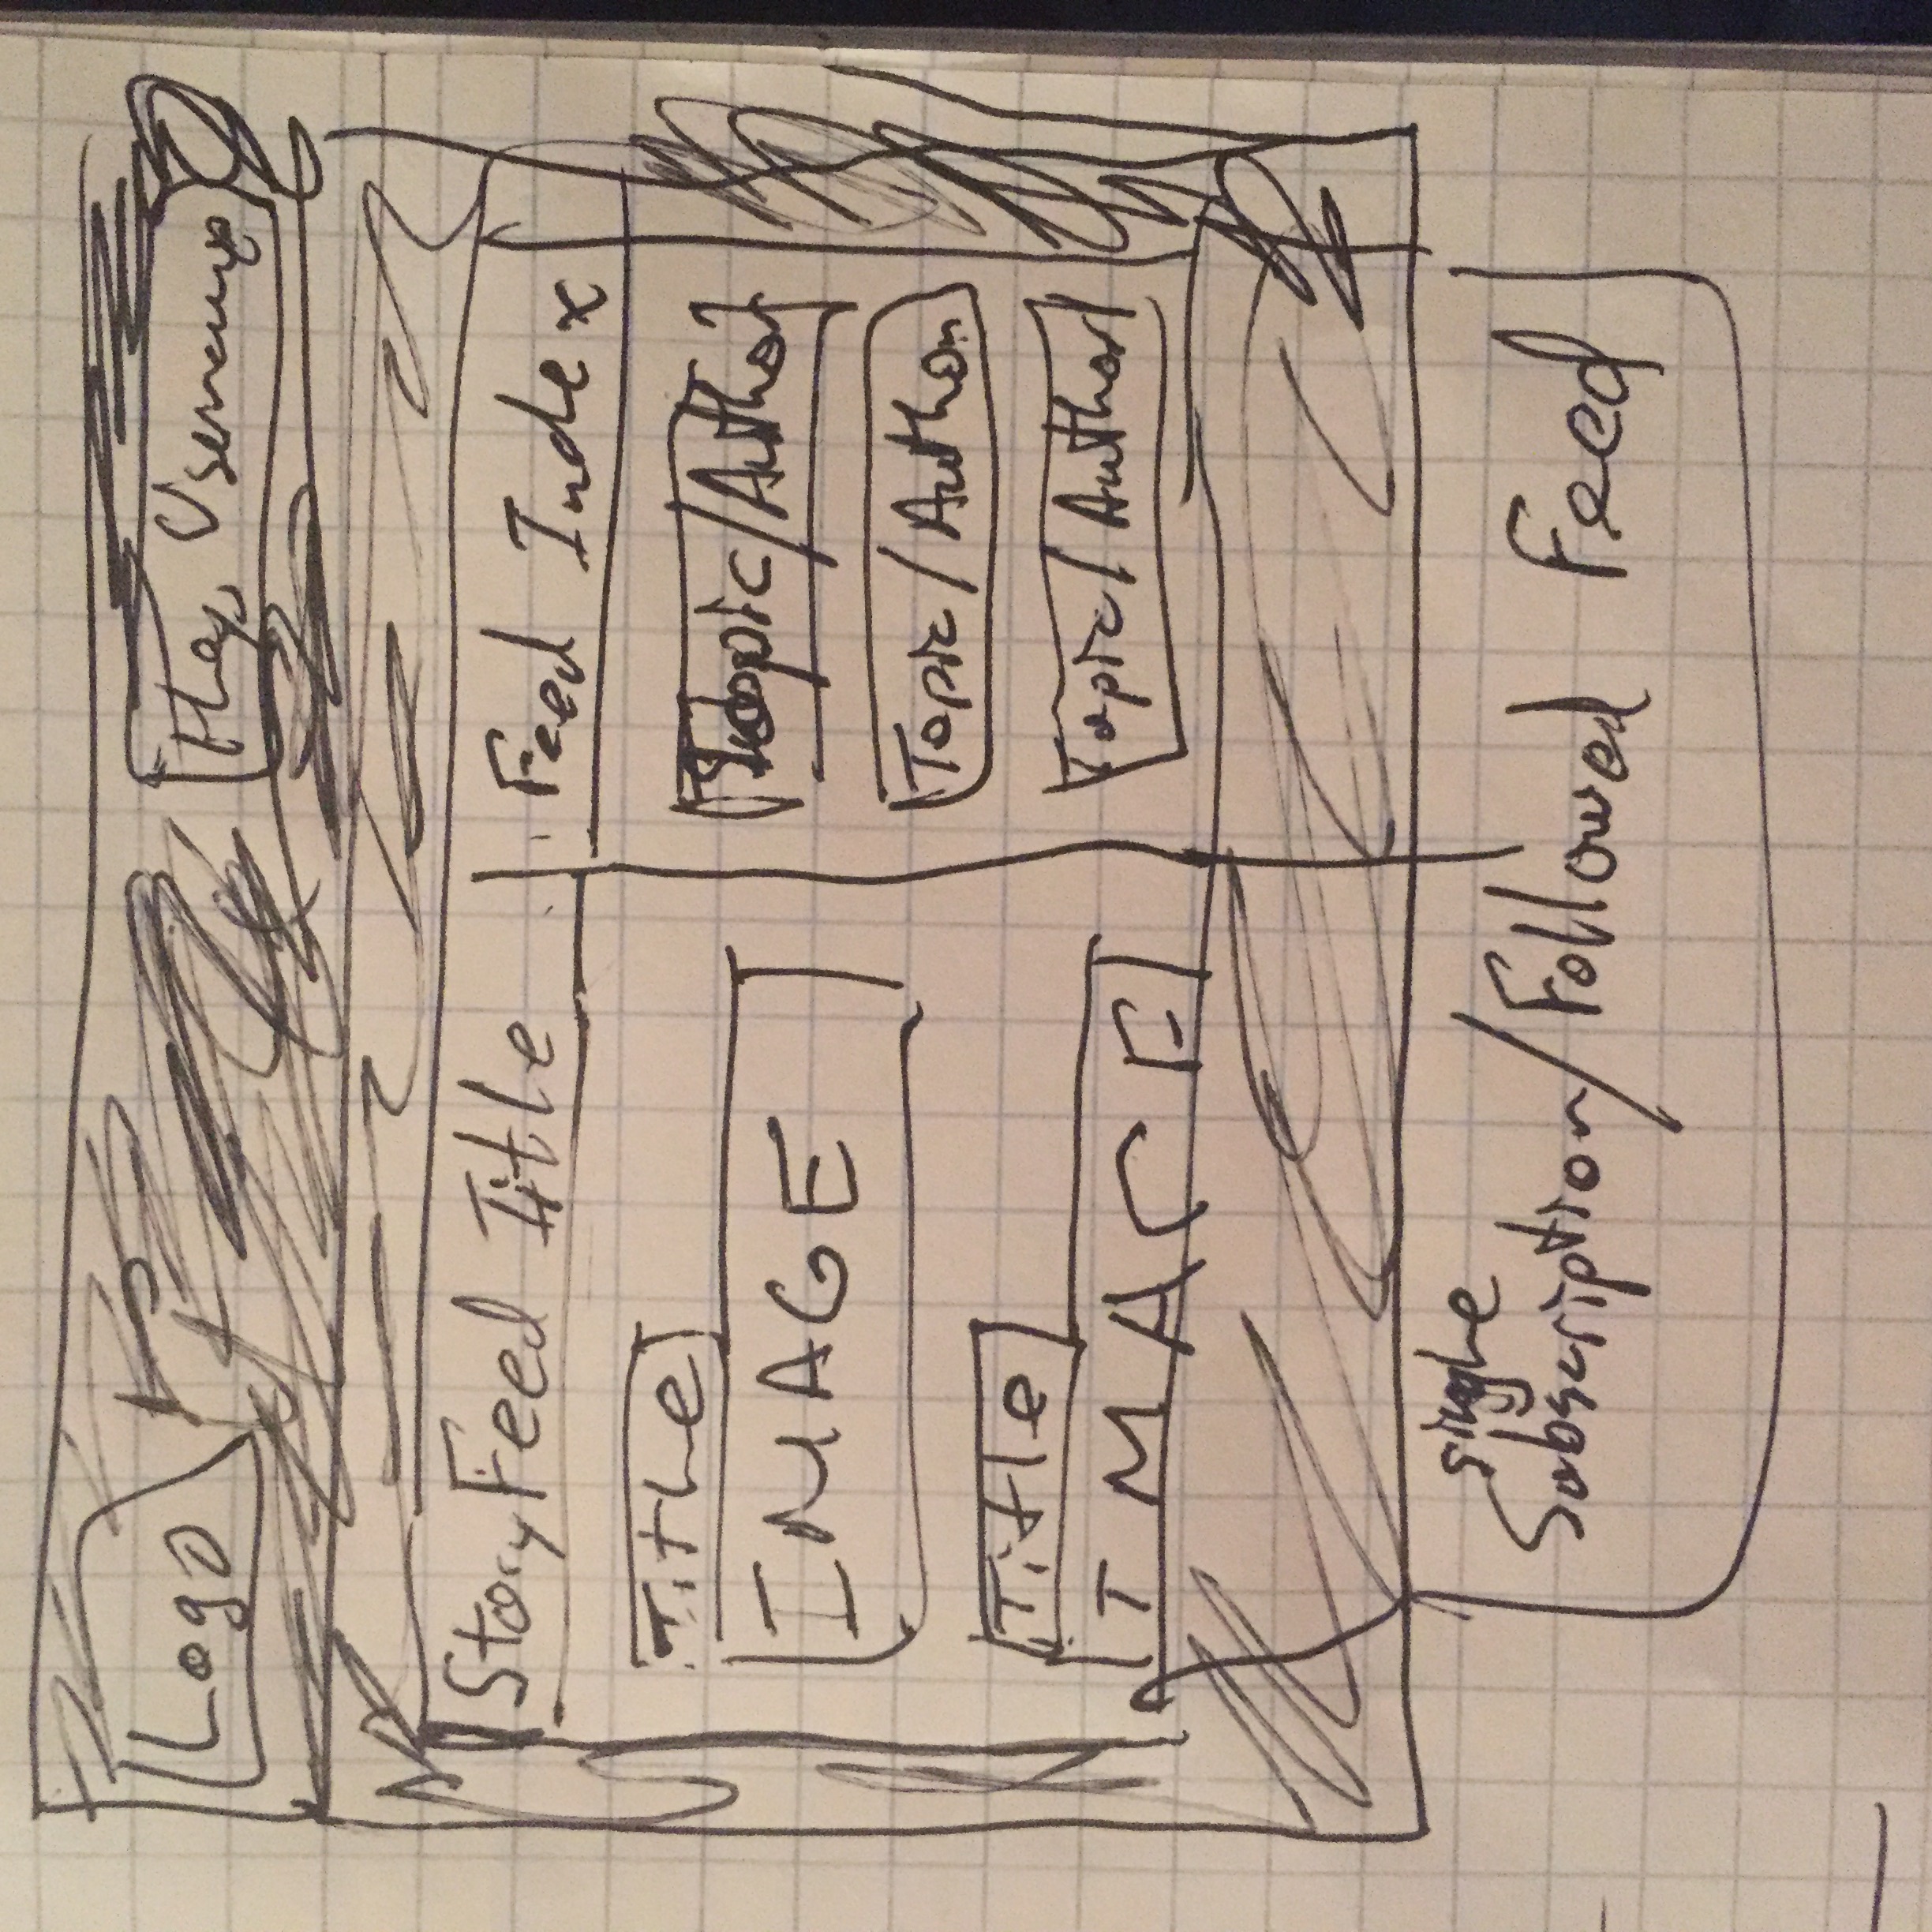 Logo
Hey, Username
StoryFeed Title
Feed Index
Title
IMAGE
Title
IMAGE
Topic/Author
Topic/Author
Topic/Author
single
Subscription/Followed Feed